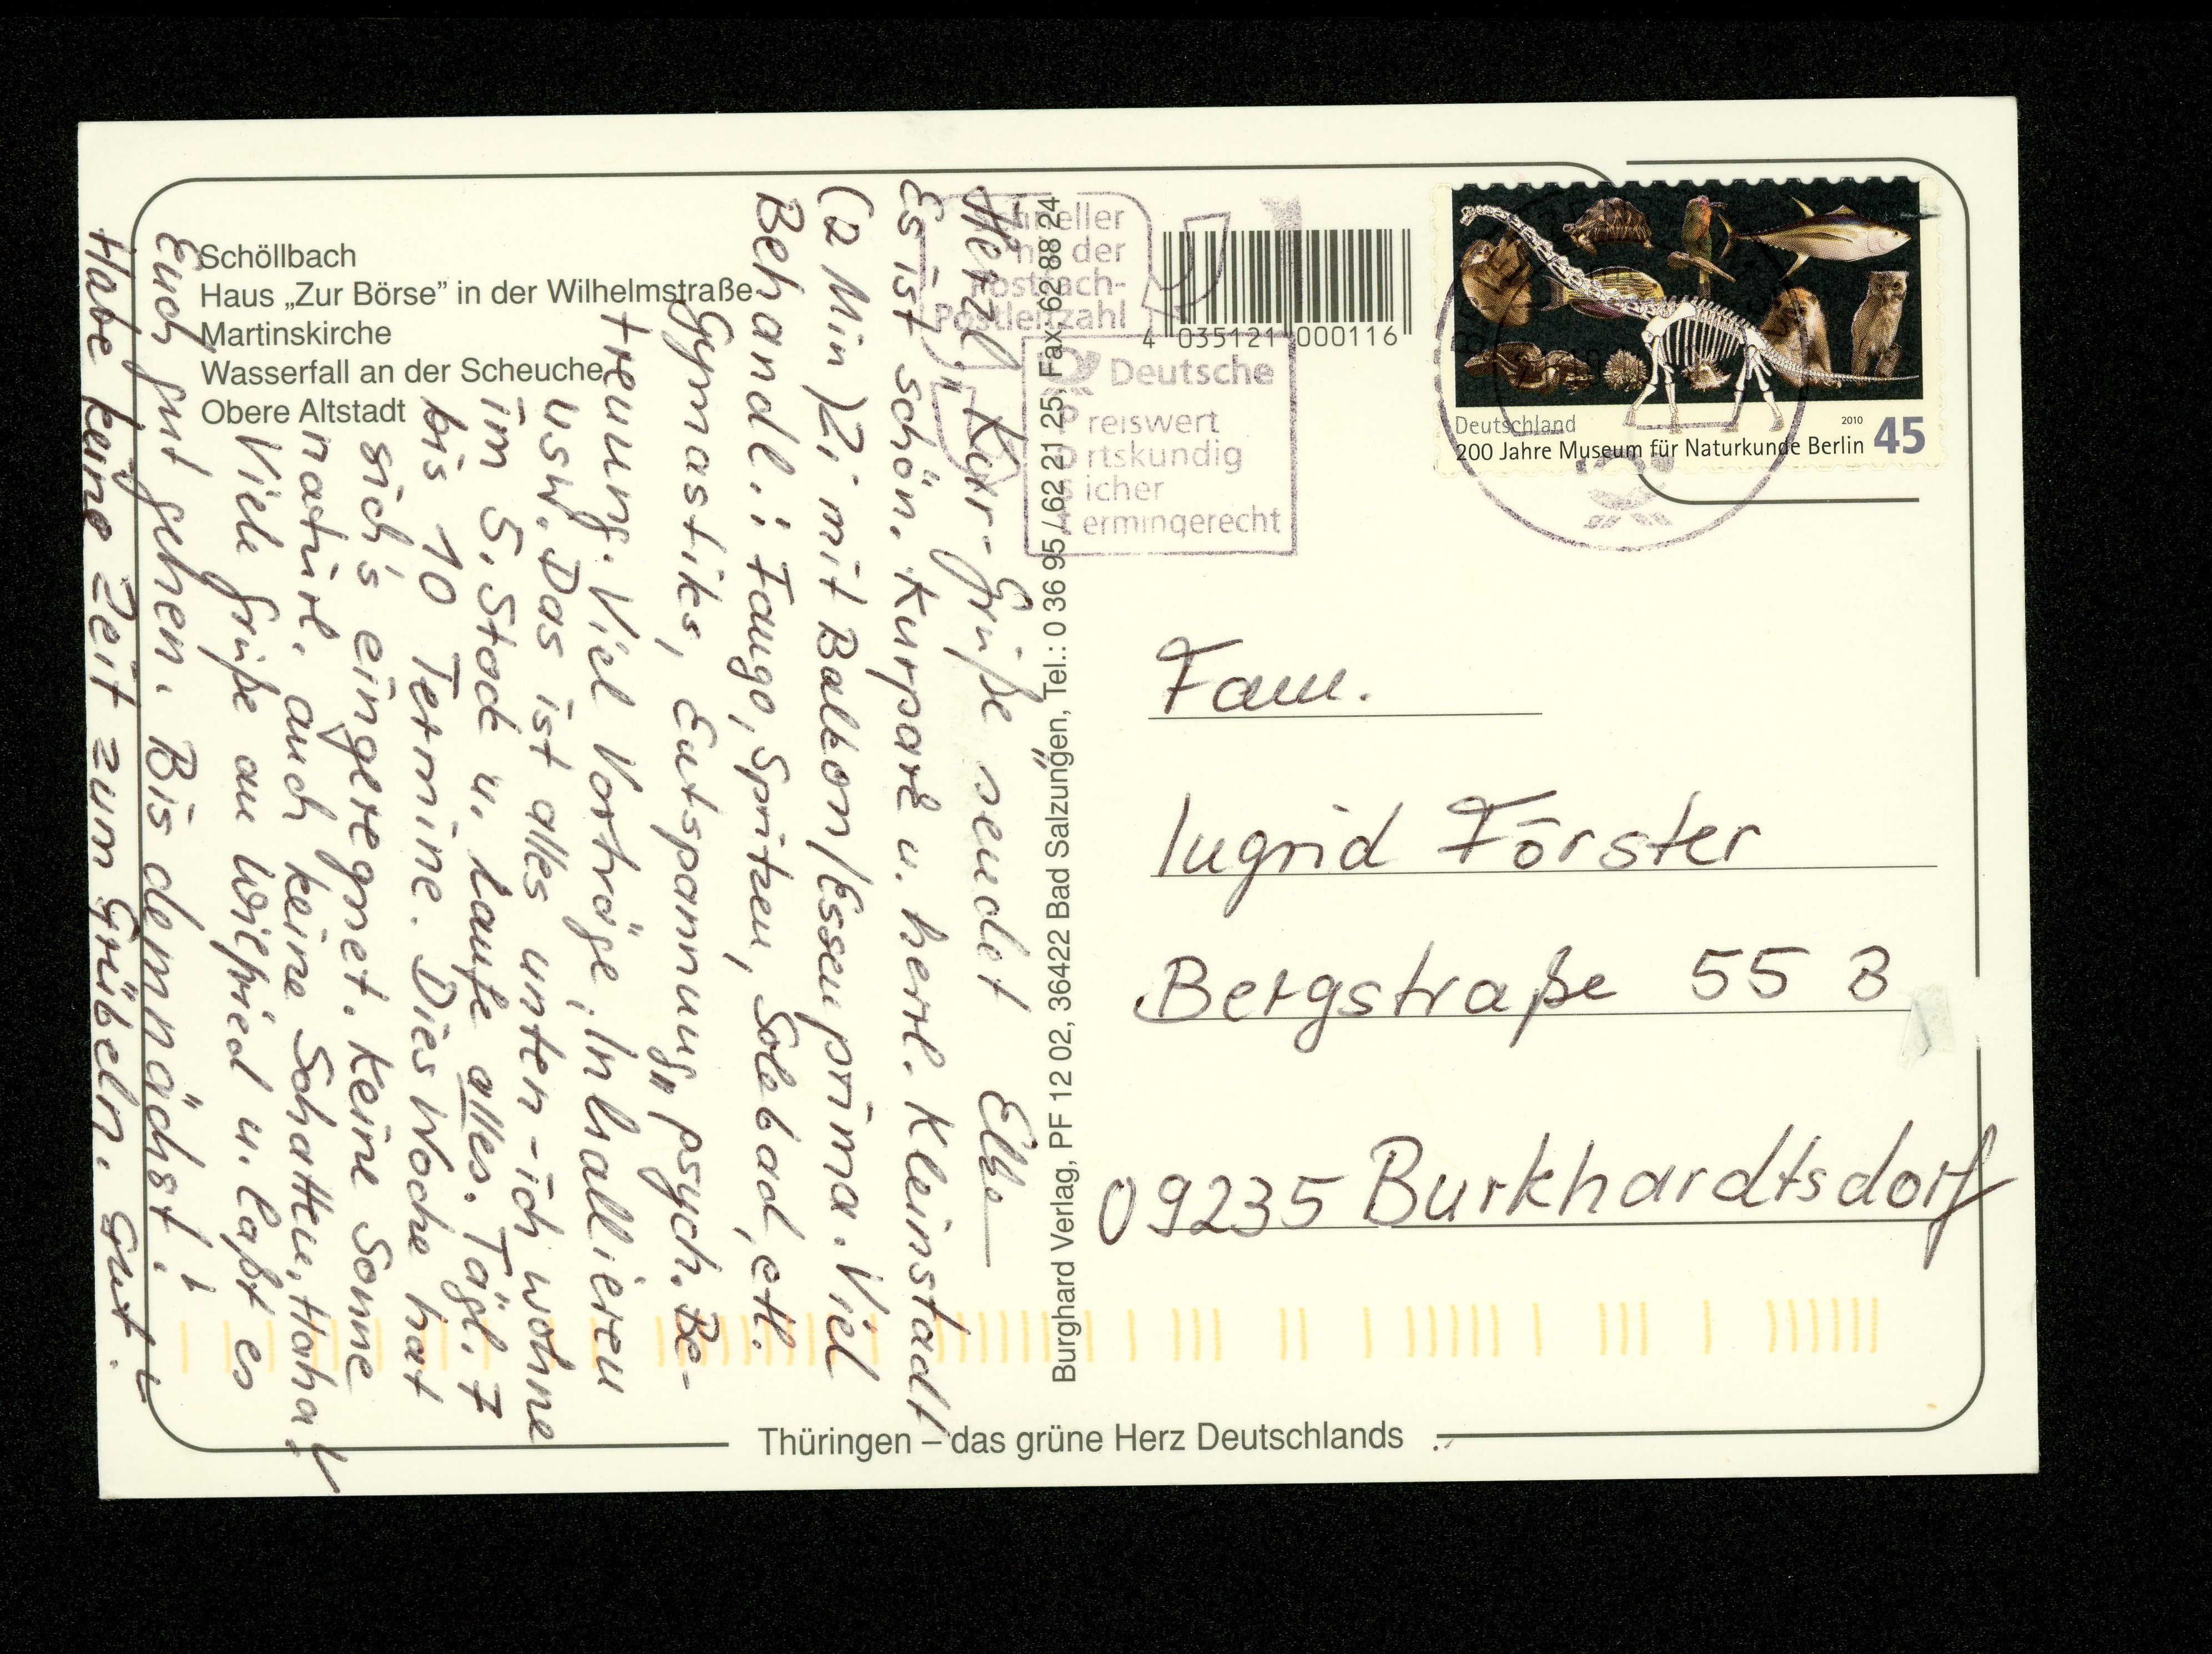 Schöllbach
Haus „Zur Börse” in der Wilhelmstraße
Martinskirche
Wasserfall an der Scheuche
Obere Altstadt
Herzl. „Kur-Grüße” sendet Elke
Es ist schön, Kurpark u. herrl. Kleinstadt
(2 Min) Zi mit Balkon/Essen prima. Viel
Behandl.: Fango, Spritzen, Solebad, etl.
Gymnastiks, Entspannung „psych. Be-
treuung. Viel Vorträge, Inhallieren
usw. Das ist alles unten - ich wohne
im 5. Stock u. laufe alles. Tägl. 7
bis 10 Termine. Dies Woche hat
sich's eingeregnet. Keine Sonne
natürl. auch keine Schatten, Haha!
Viele Grüße an Wilfried u. laßt es
Euch gut gehen. Bis demnächst!
Habe keine Zeit zum Grübeln. Gut!
Postleitzahl
4 035121 000116
Deutsche
Preiswert
Ortskundig
Sicher
Termingerecht
Burghard Verlag, PF 12 02, 36422 Bad Salzungen, Tel.: 0 36 95 / 62 21 25, Fax: 62 88 24
Deutschland 2010
200 Jahre Museum für Naturkunde Berlin 45
Fam.
Ingrid Förster
Bergstraße 55 B
09235 Burkhardtsdorf
Thüringen – das grüne Herz Deutschlands